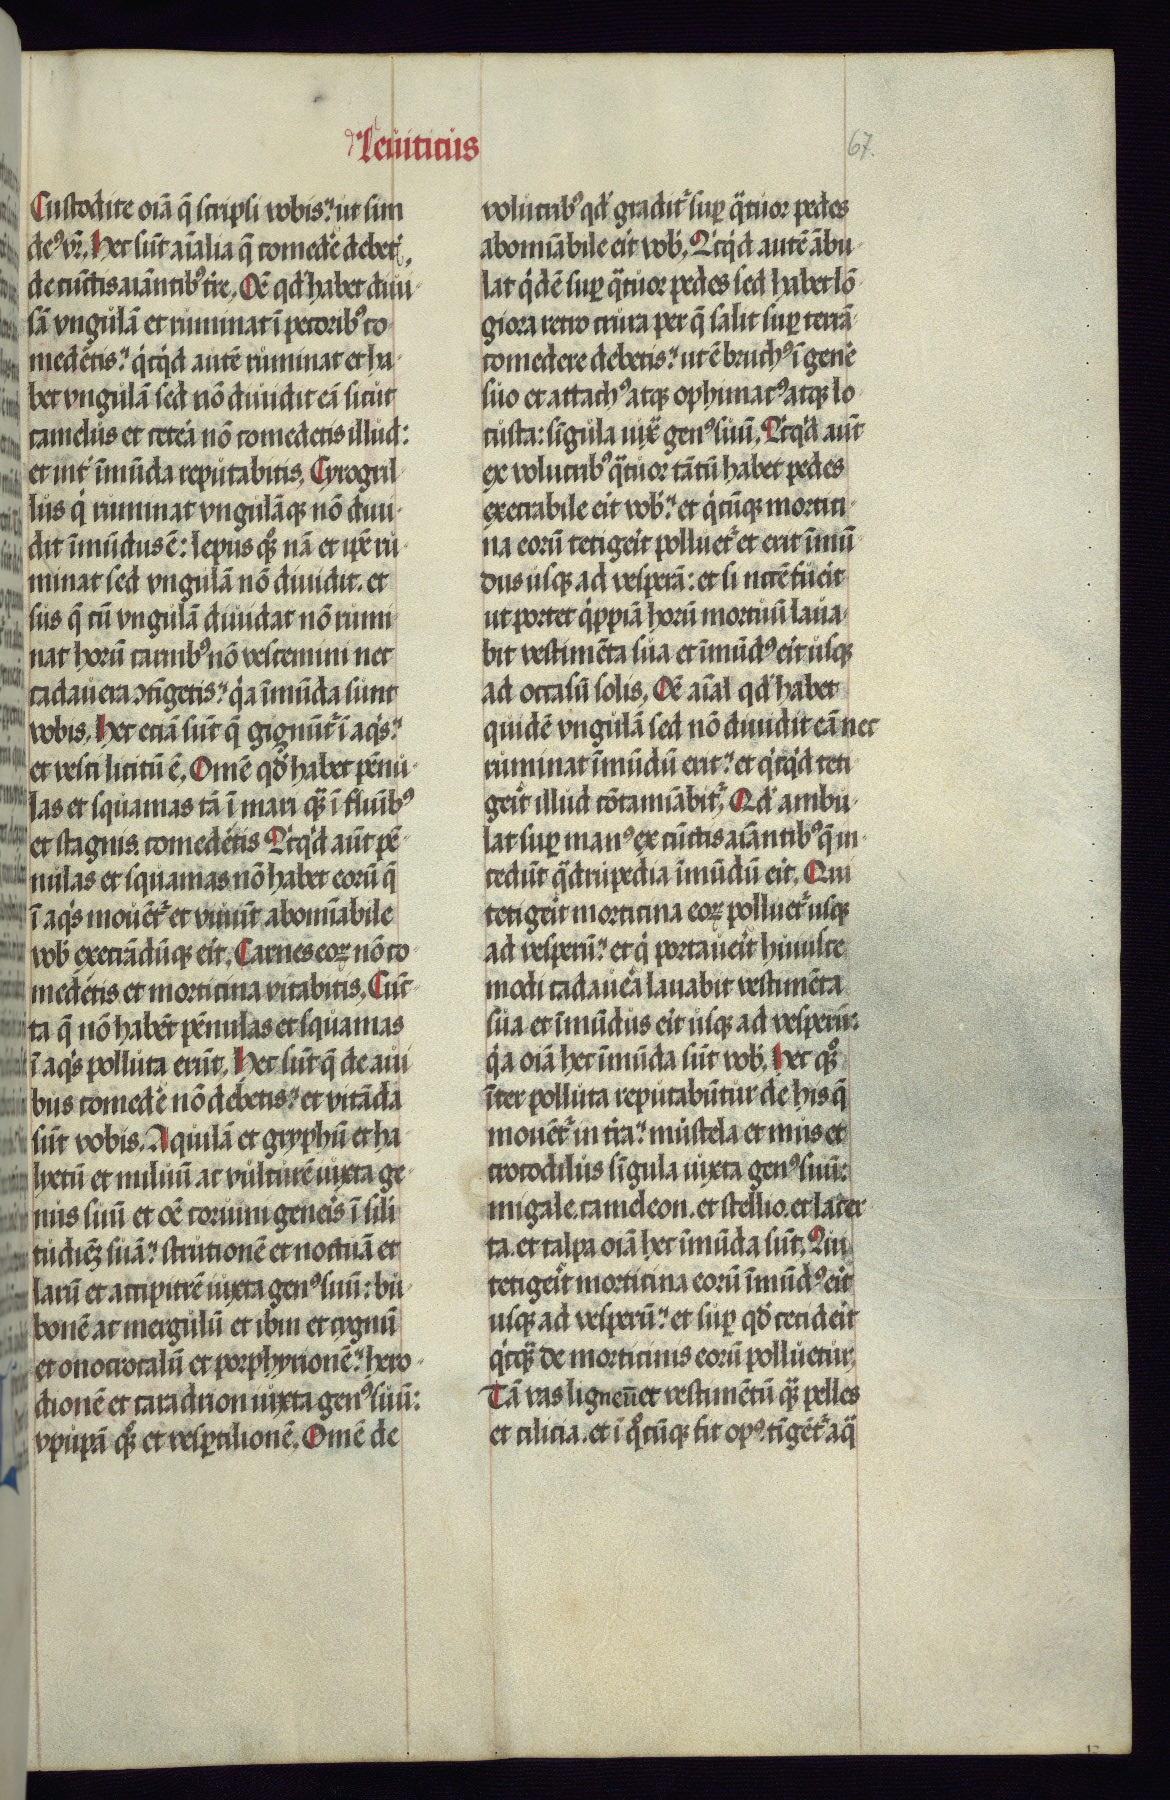 Leuiticus
67.
Custodite oiā q̄ scripsi vobis: ut sim
de⁹ vr̄. Hec sūt aīalia q̄ comedē debet᷒
de cūctis aiāntib⁹ tre. Oē qd̓ habet diui-
sā vngulā et ruminat ī pecorib⁹ co-
medetis: qͥcqͥd autē ruminat et ha-
bet vngulā sed nō diuidit eā sicut
camelus et cetea nō comedetis illud:
et int̓ īmūda reputabitis. Cyrogril-
lus qͥ ruminat vngulāq; nō diui-
dit īmūdus ē: lepus qͦq; nā et ip̄e ru-
minat sed vngulā nō diuidit. et
sus q̄ cū vngulā diuidat nō rumi-
nat horū carnib⁹ nō vescemini nec
cadauera ɔtigetis: qͥa īmūda sunt
vobis. Hec eciā sūt q̄ gignūt᷒ ī aqͥs:
et vesci licitū ē. Omē qd̓ habet pēnu-
las et squamas tā ī mari qͣ ī fluīb⁹
et stagnis. comedetis Qͥcqͥd aūt pē-
nulas et squamas nō habet eorū q̄
ī aqͥs mouēt᷒ et viuūt abomīabile
vob̓ execrādūq; eit. Carnes eoꝝ nō co-
medetis et morticina vitabitis. Cūc-
ta q̄ nō habēt pēnulas et squamas
ī aqͥs polluta erūt. Hec sūt q̄ de aui-
bus comedē nō debetis: et vitāda
sūt vobis. Aquilā et gryphū et ha-
lyetū et miluū ac vulturē iuxta ge-
nus suū et oē coruini geneis ī sili-
tudiēȝ suā: strutionē et noctuā et
larū et accipitrē iuxta gen⁹ suū: bu-
bonē ac mergulū et ibin et cygnū
et onocrotalū et porphyrionē: hero-
dionē et caradrion iuxta gen⁹ suū:
vpupā qͦq; et vesꝑtilionē. Omē de
volucrib⁹ qd̓ gradit᷒ suꝑ qͣtuor pedes
abomīabile eit vob̓. Qͥcqͥd autē ābu-
lat qͥdē suꝑ qͣtuor pedes sed habet lō-
giora retro crura per q̄ salit suꝑ terrā
comedere debetis: ut ē bruch⁹ ī genē
suo et attach⁹ atq; ophimac⁹ atq; lo-
custa: sīgula iuxͣ gen⁹ suū. Qͥcqͥd aūt
ex volucrib⁹ qͣtuor tātū habet pedes
execrabile eit vob̓: et qͥcūq; mortici-
na eorū tetigeit polluet᷒ et erit īmū-
dus usq; ad vesperā: et si nccē fueit
ut portet qͥppiā horū mortuū laua-
bit vestimēta sua et īmūd⁹ eit usq;
ad occasū solis. Oē aīal qd̓ habet
quidē vngulā sed nō diuidit eā nec
ruminat īmūdū erit: et qͥcqͥd teti-
geit illud cōtamīabit᷒. Qd̓ ambu-
lat suꝑ man⁹ ex cūctis aiāntib⁹ q̄ in-
cedūt qͣdrupedia īmūdū eit. Qui
tetigeit morticina eoꝝ polluet᷒ usq;
ad vesperū: et qͥ portaueit huiusce-
modi cadauea lauabit vestimēta
sua et īmūdus eit usq; ad vesperū:
qͥa oiā hec īmūda sūt vob̓. Hec qͦq;
īter polluta reputabūtur de his q̄
mouēt᷒ in tra: mustela et mus et
crocodilus sīgula iuxta gen⁹ suū:
migale. cameleon. et stellio. et lacer-
ta. et talpa oiā hec īmūda sūt. Qui
tetigeit morticina eorū īmūd⁹ eit
usq; ad vesperū: et suꝑ qd̓ cecideit
qͥcqͣ de morticinis eorū polluetur,
Tā vas ligneū et vestimētū qͣ pelles
et cilicia. et ī qͦcūq; fit op⁹. tīgēt᷒ aqͣ